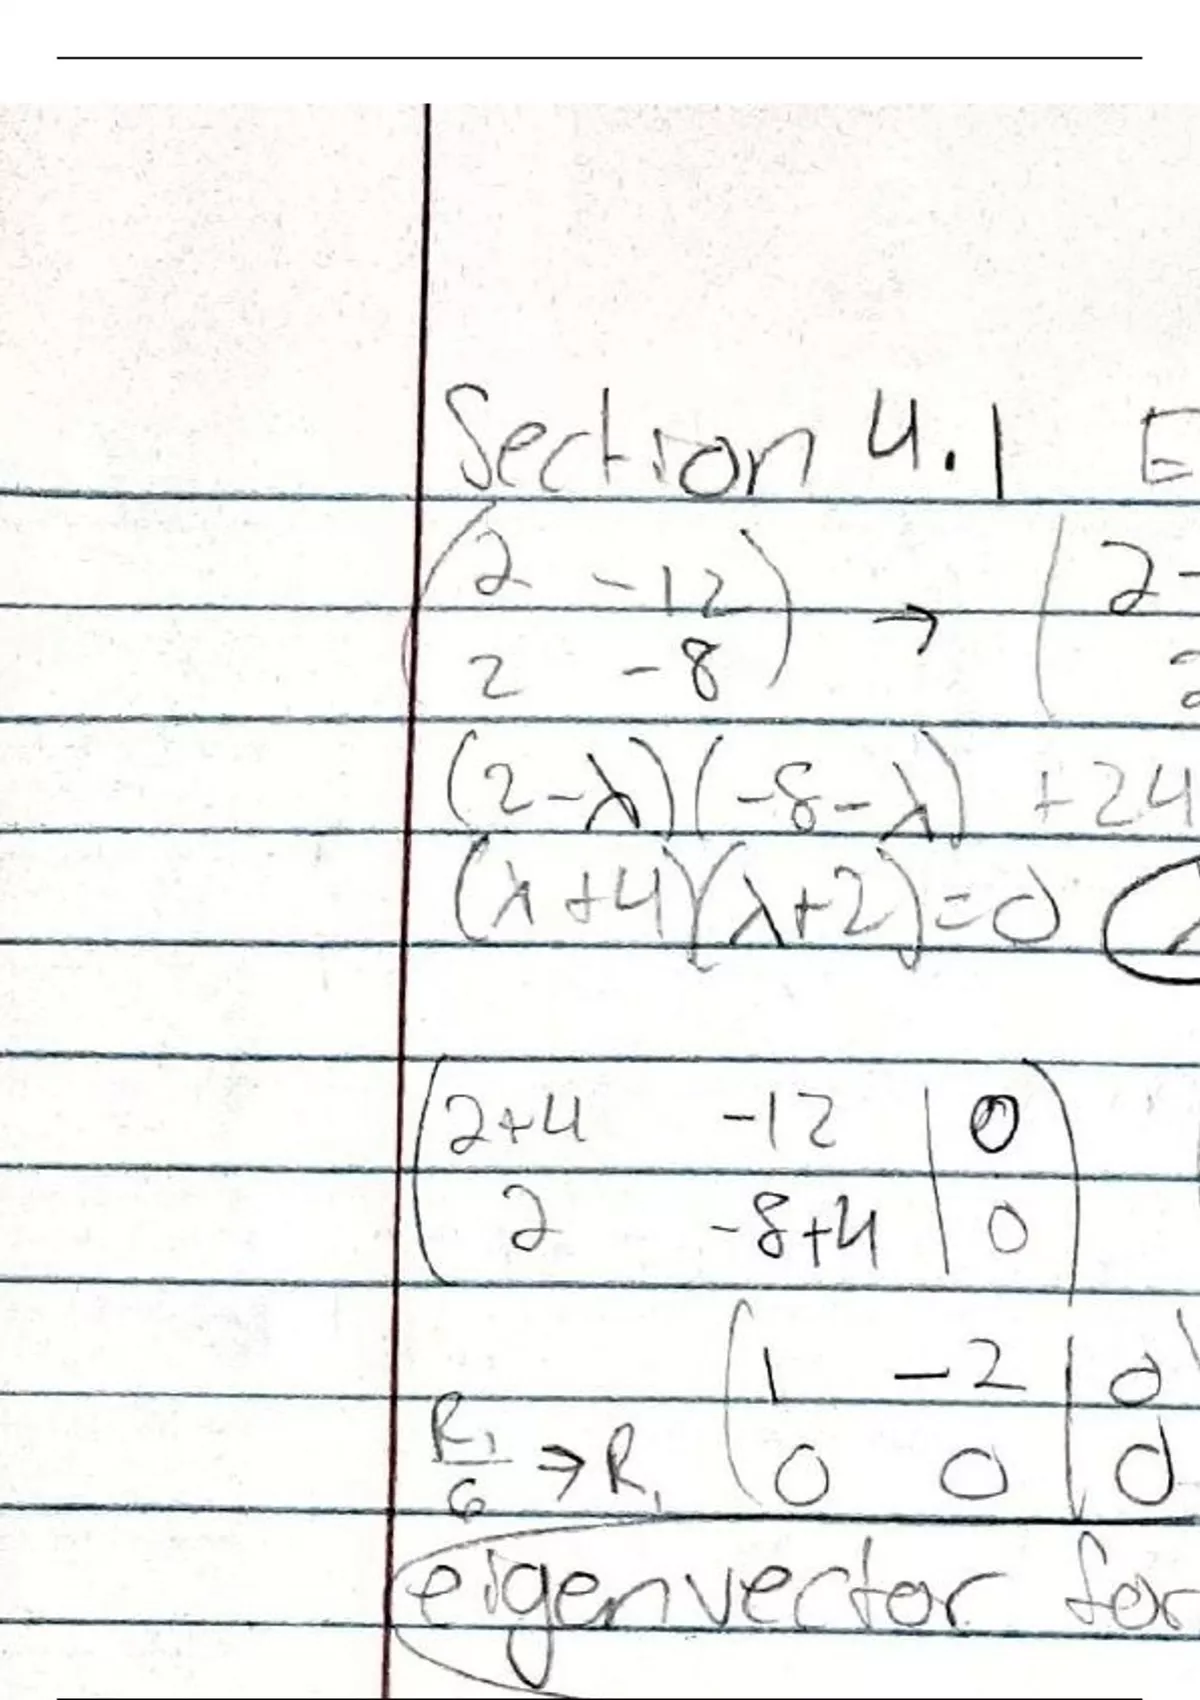 Section 4.1 E
(2 -12) → (2-
2 -8
(2-λ)(-8-λ) +24
(λ+4)(λ+2)=0
(2+4 -12 | 0)
2 -8+4 | 0
(1 -2 | 0)
R₁/6 → R₁ 0 0 | 0
eigenvector for